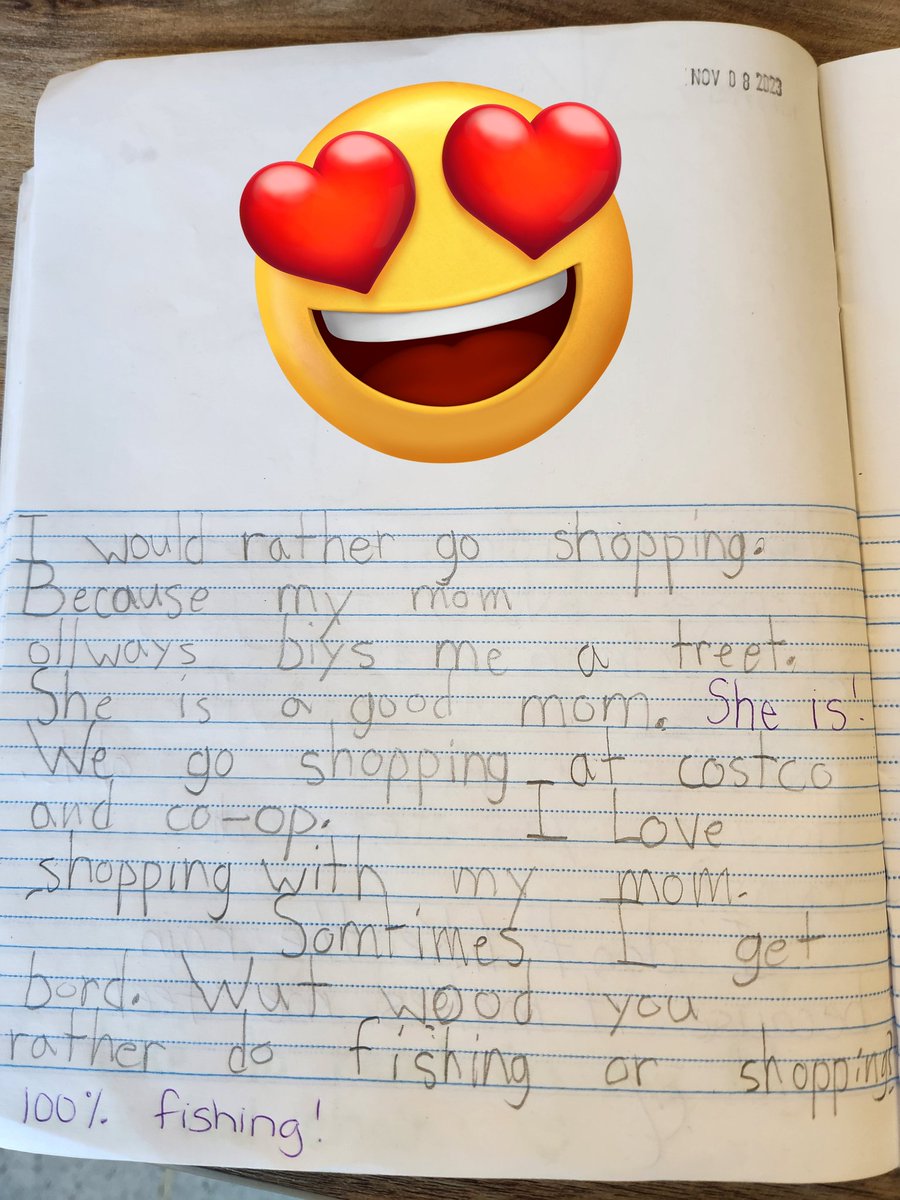 NOV 08 2023
I would rather go shopping.
Because my mom
ollways biys me a treet.
She is a good mom. She is!
We go shopping at costco
and co-op. I Love
shopping with my mom.
Somtimes I get
bord. Wut weood you
rather do fishing or shopping?
100% fishing!